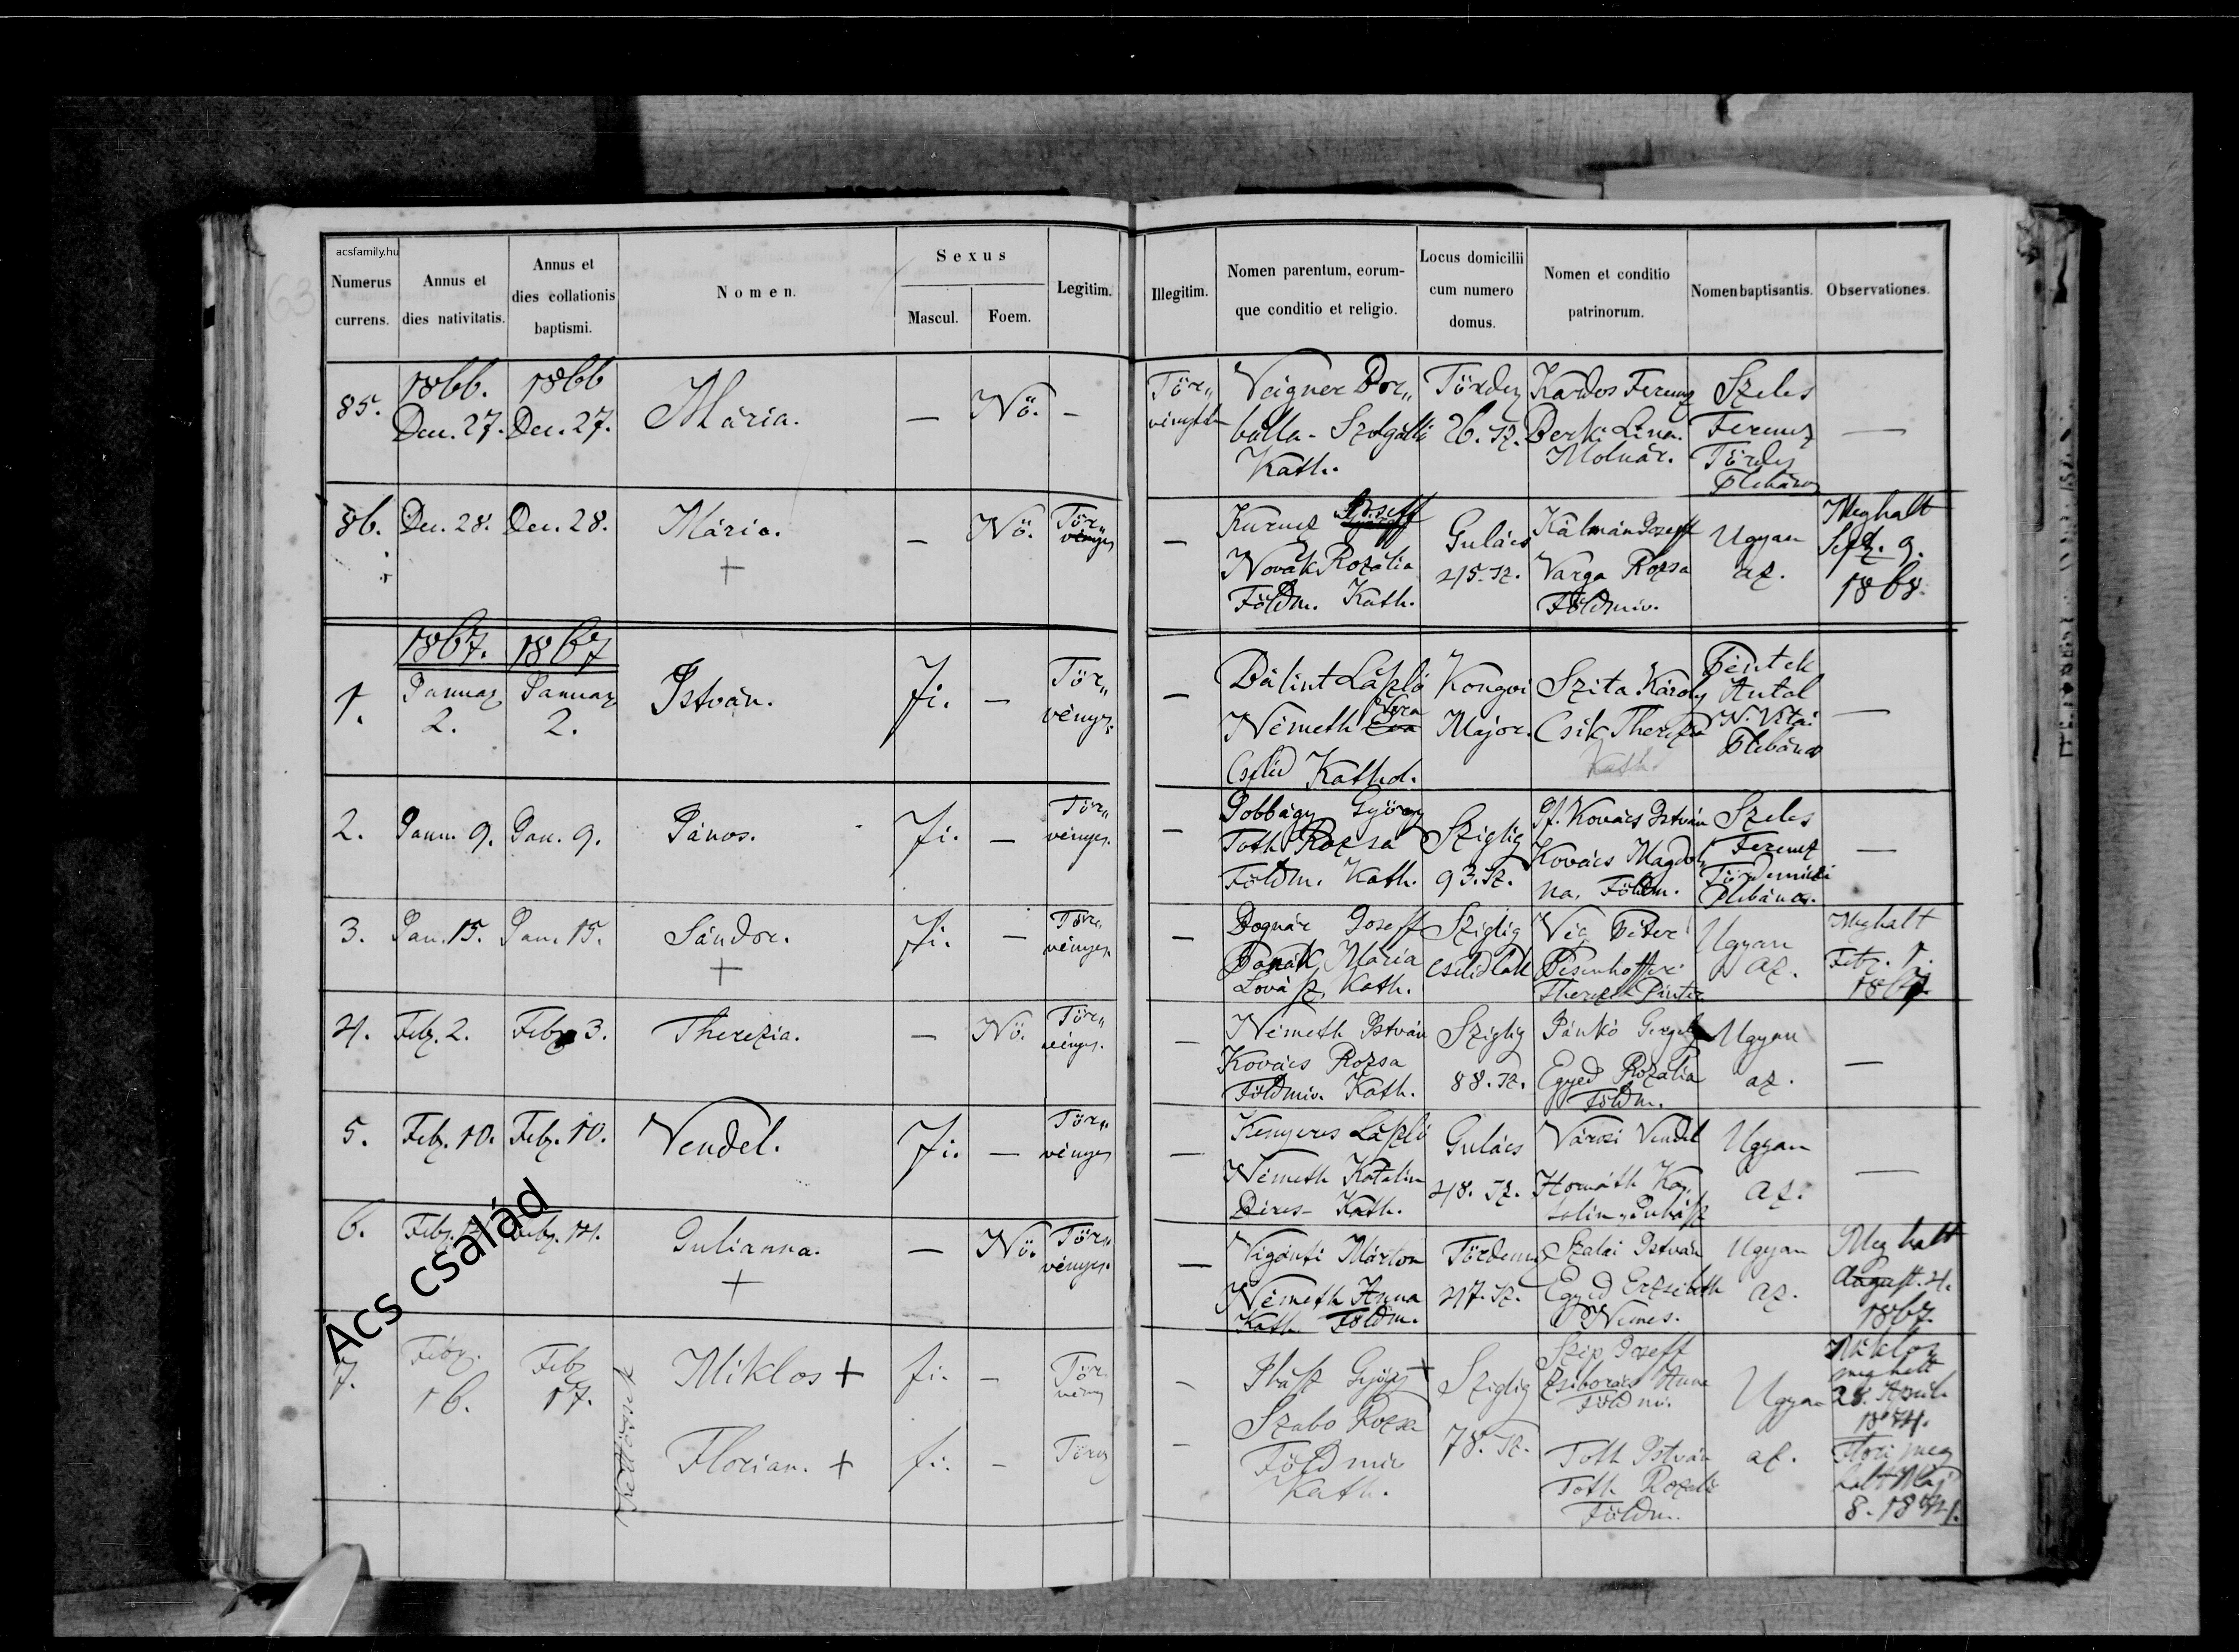 acsfamily.hu
Numerus currens.
Annus et dies nativitatis.
Annus et dies collationis baptismi.
Nomen.
Sexus
Mascul.
Foem.
Legitim.
Illegitim.
Nomen parentum, eorum-
que conditio et religio.
Locus domicilii
cum numero
domus.
Nomen et conditio
patrinorum.
Nomen baptisantis.
Observationes.
85.
1866.
Dec. 27.
1866
Dec. 27.
Mária.
—
Nő.
-
Tör„
Veigner Bor„
balla - Szolgáló
Kath.
26. sz.
Kardos Ferencz
Berki Lina.
Molnár.
Szeles
Ferencz
—
86.
Dec. 28.
Dec. 28.
Mária.
+
—
Nő.
Tör„
vényes
—
Kuruncz Joseff
Novák Rozália
Földm. Kath.
Gulács
45. sz.
Kálmán Joseff
Varga Rozsa
Földmiv.
Ugyan
az.
Meghalt
Sept. 9.
1868.
1867. 1867
1.
Januar
2.
Januar
2.
István.
Fi.
—
Tör„
vényes.
—
Bálint László
Németh
Cseléd Kathol.
Major.
Szita Károly
Csik Therezia
Kath.
Péntek
Antal
N. Vitai
Plébános
—
2.
Janu. 9.
Jan. 9.
János.
Fi.
—
Tör„
vényes.
—
Jobbágy György
Toth Rozsa
Földm. Kath.
Sziglig
93. sz.
Kovács István
Kovács Magdol
na. Földm.
Szeles
Ferencz
Tördemici
Plébános.
—
3.
Jan. 15.
Jan. 15.
Sándor.
+
Fi.
—
Tör„
vényes.
—
Bognár Joseff
Mária
Kath.
Sziglig
cselédlak
Vig Péter
Therezia Pintér
Ugyan
az.
Meghalt
Feb. 1.
1867.
4.
Feb. 2.
Feb. 3.
Therezia.
—
Nő.
Tör„
vényes.
—
Németh István
Kovács Rozsa
Földmiv. Kath.
Sziglig
88. sz.
Jánkó Gergely
Egyed Rozália
Földm.
Ugyan
az.
—
5.
Feb. 10.
Feb. 10.
Vendel.
Fi.
—
Tör„
vényes
—
Kenyeres László
Németh Katalin
Béres - Kath.
Gulács
48. sz.
Vendel
Horváth Ka„
talin, Juhász
Ugyan
az.
—
6.
Julianna.
+
—
Nő.
Tör„
vényes.
—
Vigánti Márton
Németh Anna
Kath. Földm.
47. sz.
Szalai István
Egyed Erzsébeth
Nemes.
Ugyan
az.
Meghalt
August. 4.
1867.
Ács család
7.
Febr.
16.
Feb
17.
Kettősök
Miklos +
fi. -
Tör
vény
Florian. +
fi. -
-
-
György +
Szabo Rozsa
Földmiv
Kath.
Sziglig
78. sz.
Szip Joseff
Anna
Földmi.
Toth István
Toth Rozali
Földm.
Ugyan
az.
Miklos
meghalt
28. April
1874.
Flori meg
halt Maj
8. 1874.